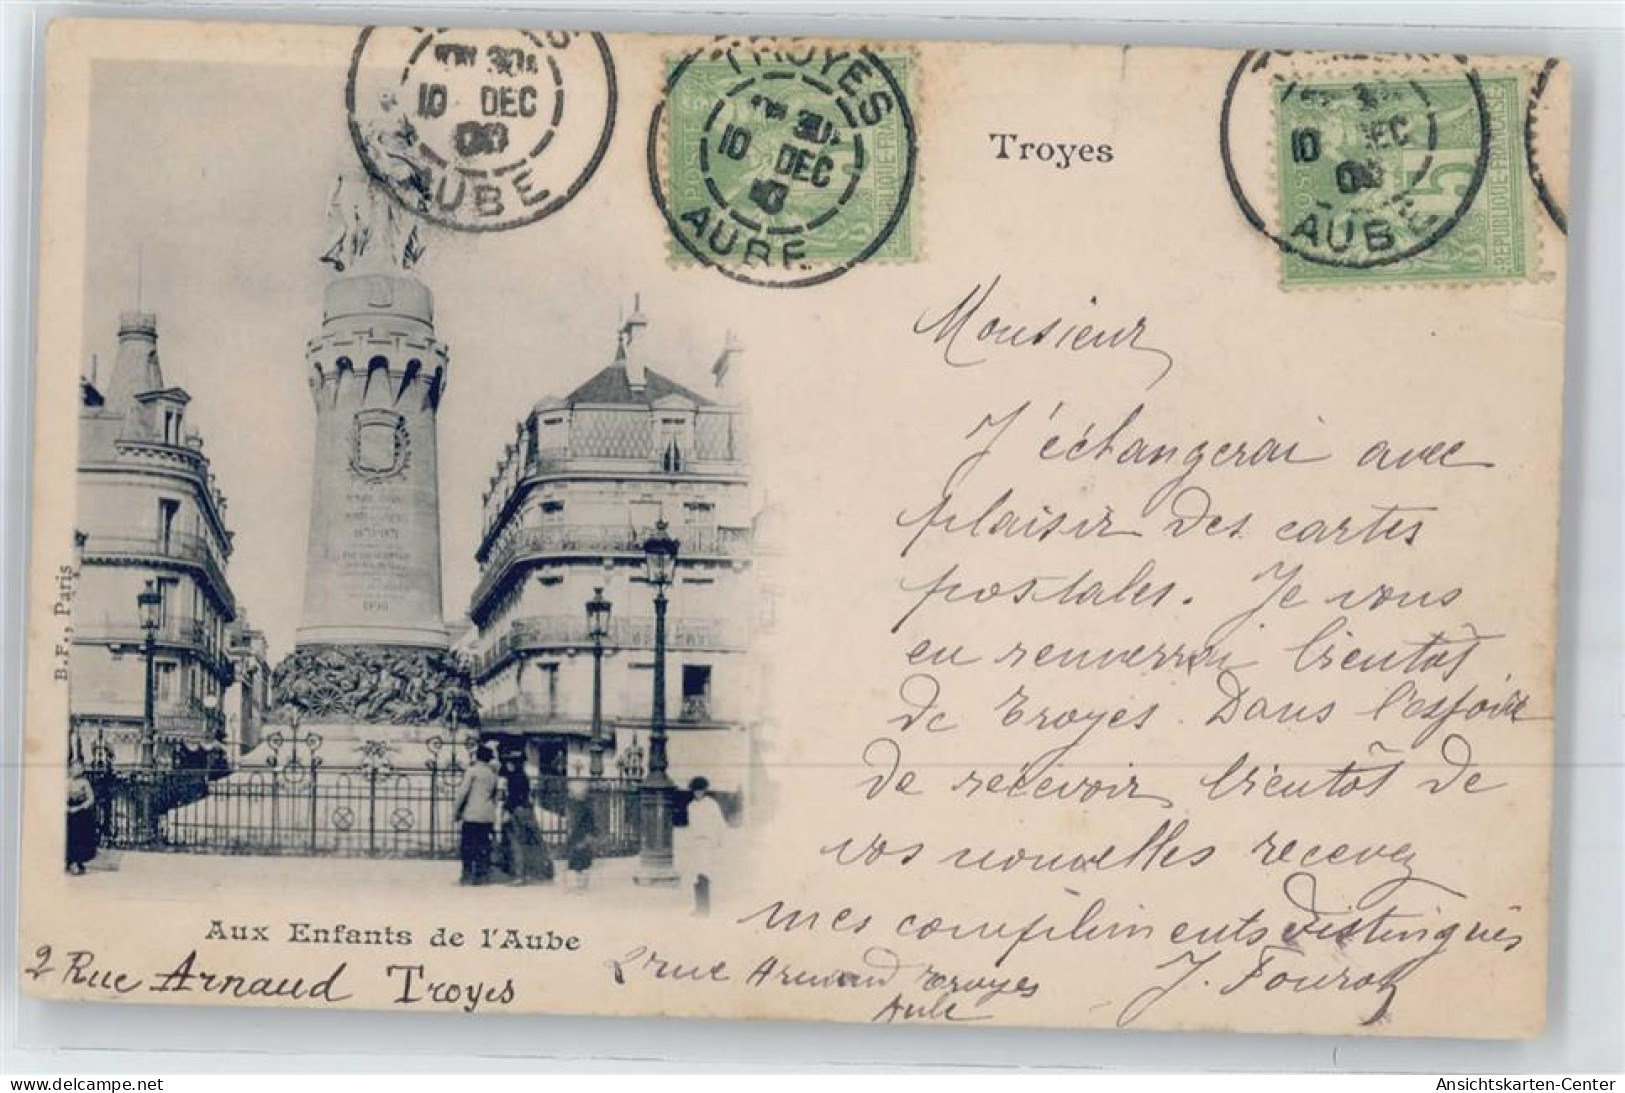 10 DEC
AUBE
TROYES
10 DEC
AUBE
10 DEC
AUBE
POSTE
REPUBLIQUE FRANÇAISE
5
Troyes
Monsieur
J'échangerai avec
plaisir des cartes
postales. Je vous
en renverrai bientôt
de Troyes. Dans l'espoir
de recevoir bientôt de
vos nouvelles recevez
mes compliments distingués
J. Fouro
2 rue Arnaud Troyes
Aube
1870-1871
1890
B.F., Paris
Aux Enfants de l'Aube
2 Rue Arnaud Troyes
Ansichtskarten-Center
www.delcampe.net